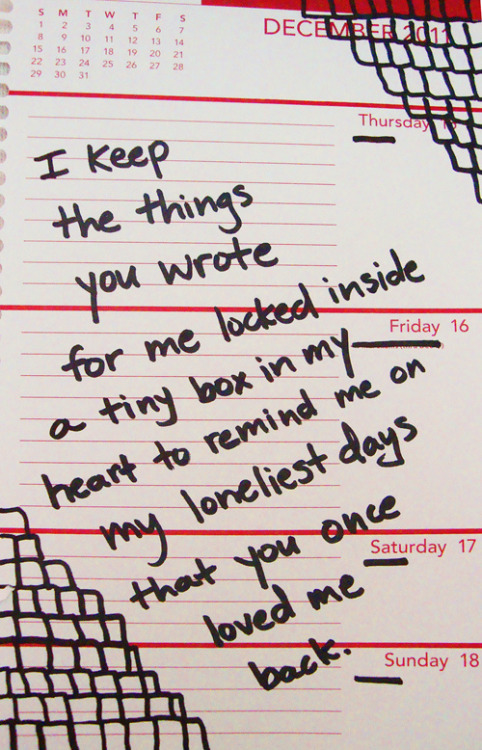 S M T W T F S
1 2 3 4 5 6 7
8 9 10 11 12 13 14
15 16 17 18 19 20 21
22 23 24 25 26 27 28
29 30 31
DECEMBER 2011
Thursday
I keep
the things
you wrote
for me locked inside
Friday 16
a tiny box in my
heart to remind me on
my loneliest days
that you once
Saturday 17
loved me
back.
Sunday 18